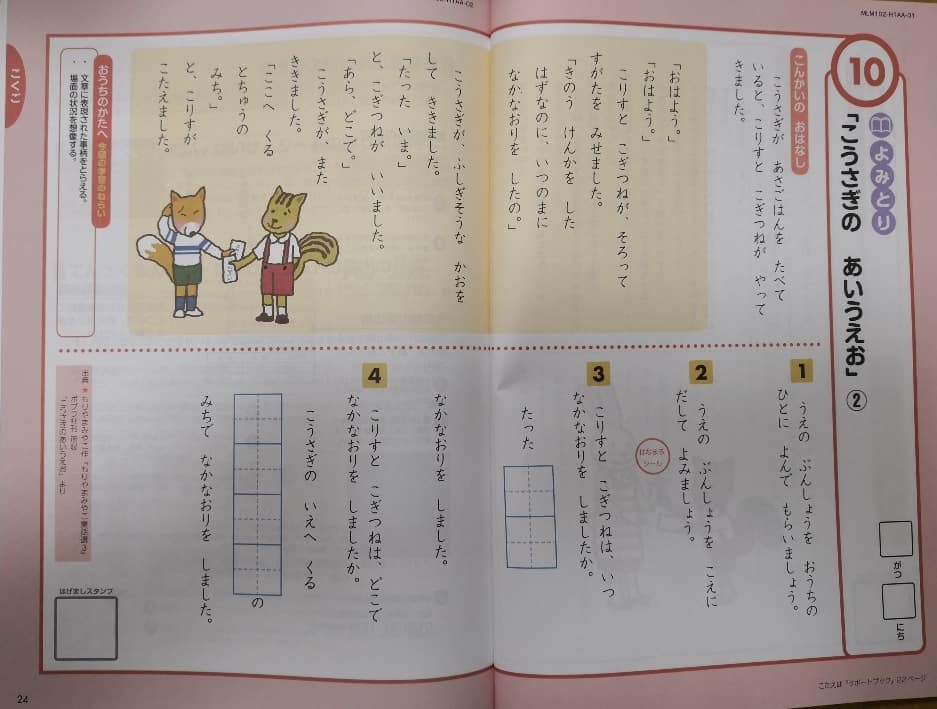 MLM102-H1AA-01
10
よみとり
「こうさぎの　あいうえお」②
がつ
にち
こんかいの　おはなし
こうさぎが　あさごはんを　たべて
いると、こりすと　こぎつねが　やって
きました。
「おはよう。」
「おはよう。」
こりすと　こぎつねが、そろって
すがたを　みせました。
「きのう　けんかを　した
はずなのに、いつのまに
なかなおりを　したの。」
こうさぎが、ふしぎそうな　かおを
して　ききました。
「たった　いま。」
と、こぎつねが　いいました。
「あら、どこで。」
こうさぎが、また
ききました。
「ここへ　くる
とちゅうの
みち。」
と、こりすが
こたえました。
おうちのかたへ　今回の学習のねらい
・文章に表現された事柄をとらえる。
・場面の状況を想像する。
こくご
1
うえの　ぶんしょうを　おうちの
ひとに　よんで　もらいましょう。
2
うえの　ぶんしょうを　こえに
だして　よみましょう。
はなまる
シール
3
こりすと　こぎつねは、いつ
なかなおりを　しましたか。
たった
なかなおりを　しました。
4
こりすと　こぎつねは、どこで
なかなおりを　しましたか。
こうさぎの　いえへ　くる
の
みちで　なかなおりを　しました。
「こうさぎのあいうえお」より
はげましスタンプ
こたえは「サポートブック」22ページ
24